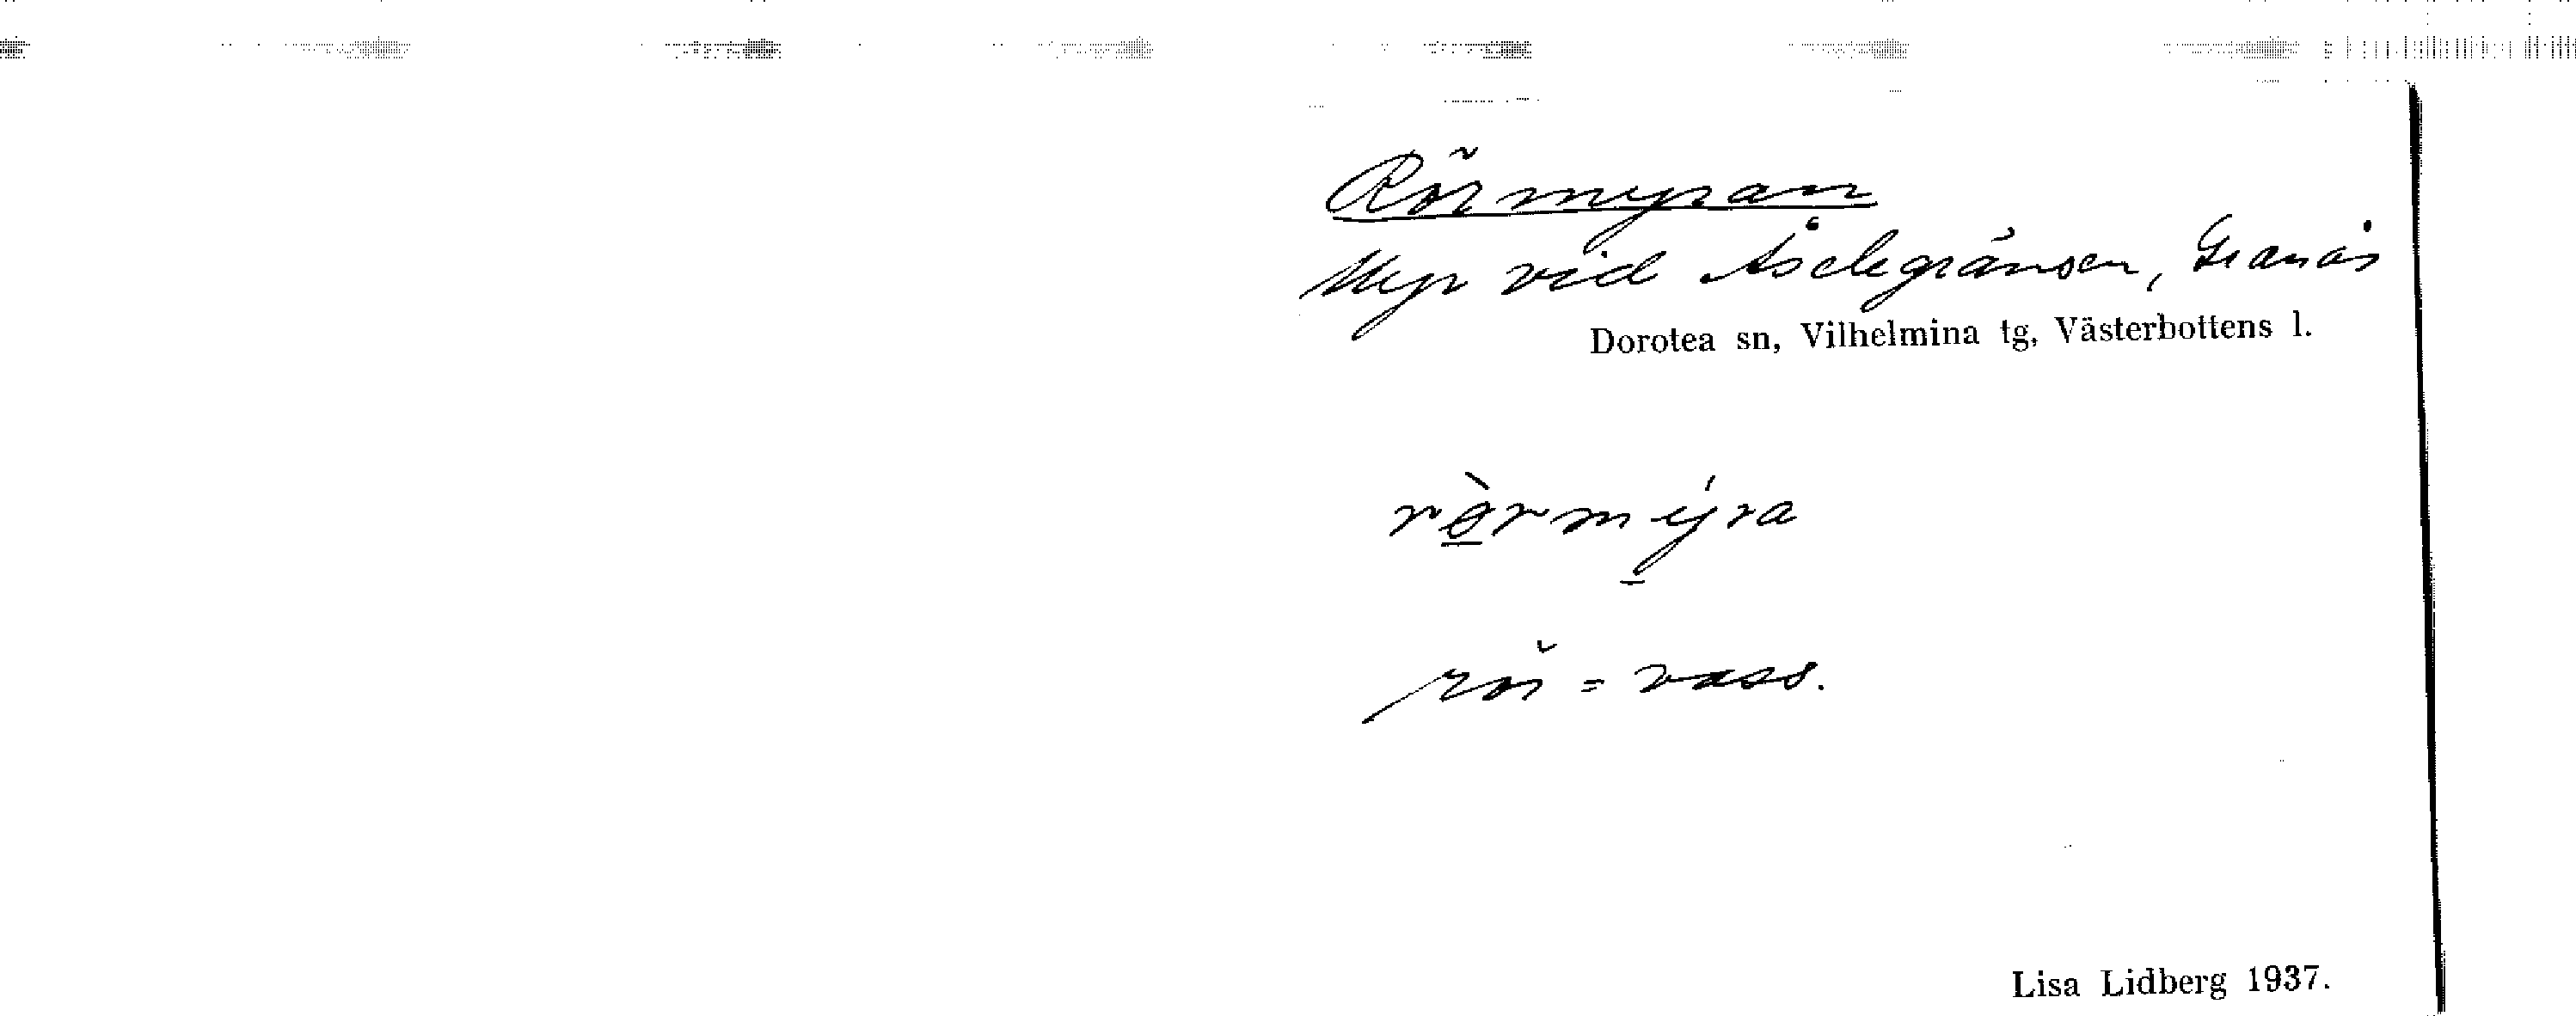 Rörmyran
Myr vid Åselegränsen, Granås
Dorotea sn, Vilhelmina tg, Västerbottens l.
rø̀rmýra
rör = vass.
Lisa Lidberg 1937.